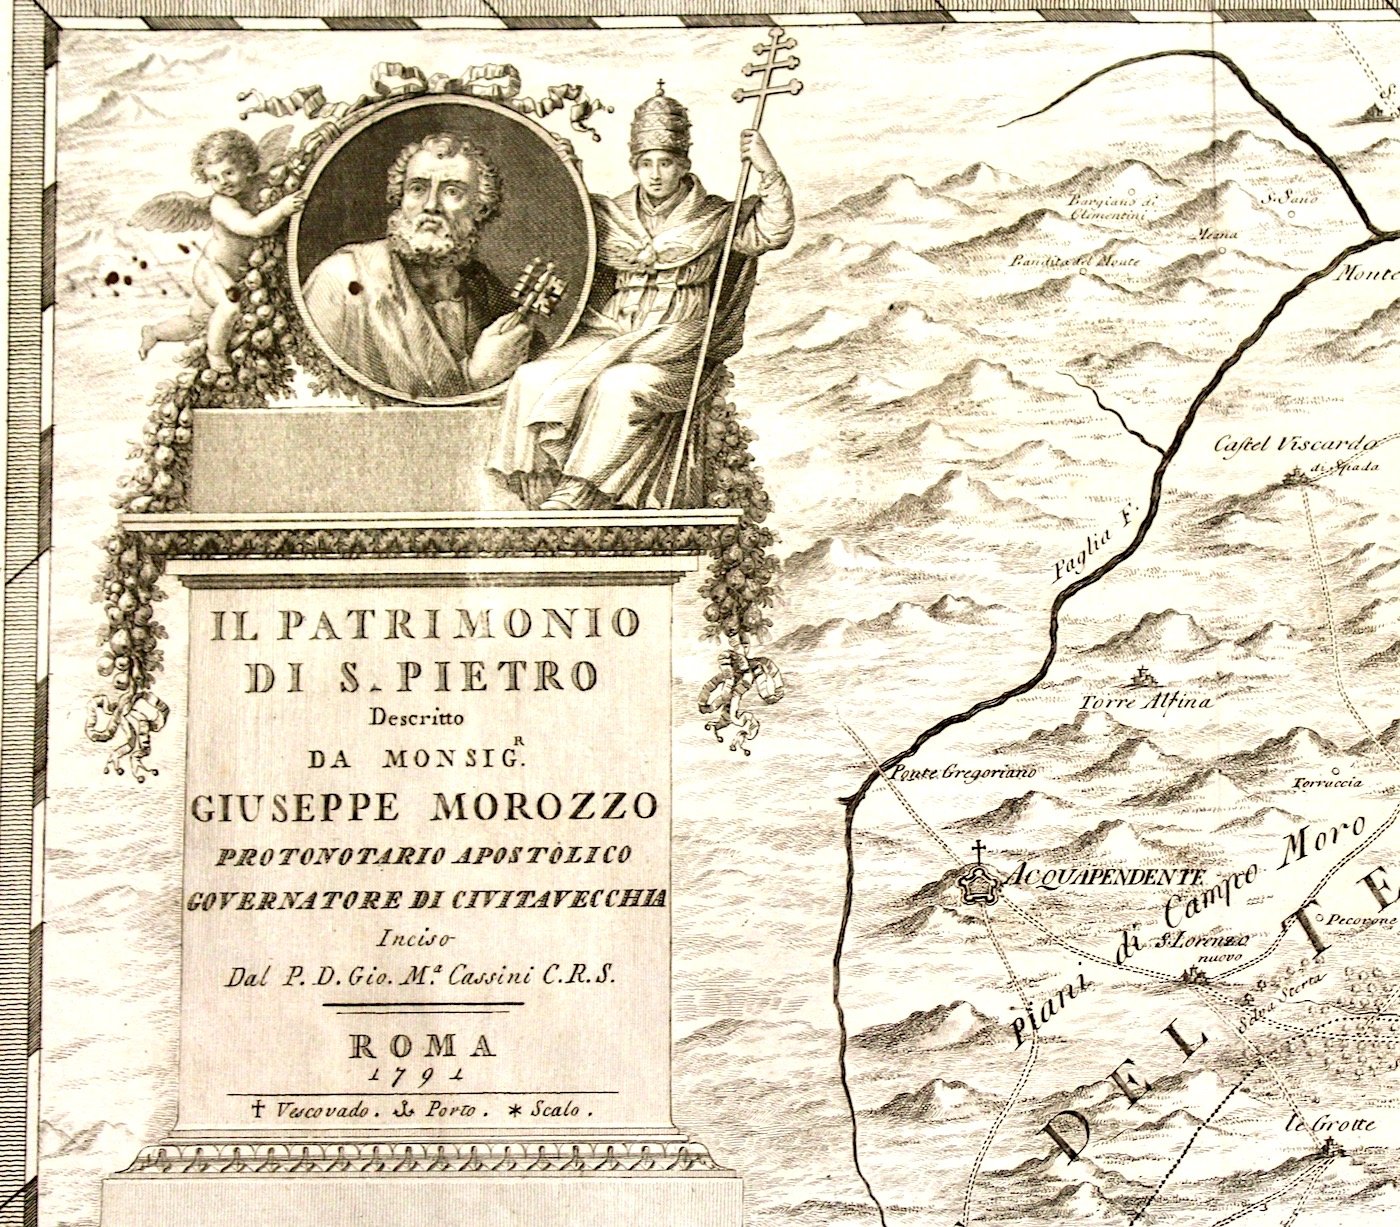 IL PATRIMONIO
DI S. PIETRO
Descritto
DA MONSIG.R
GIUSEPPE MOROZZO
PROTONOTARIO APOSTOLICO
GOVERNATORE DI CIVITAVECCHIA
Inciso
Dal P. D. Gio. M.a Cassini C.R.S.
ROMA
1791
† Vescovado. ⚓ Porto. * Scalo.
S.
Bargiano di
Climentini
S. Sano
Meana
Bandita del Monte
Monte
Castel Viscardo
di Spada
Paglia F.
Torre Alfina
Ponte Gregoriano
Torruccia
ACQUAPENDENTE
Piani di Campo Moro
S. Lorenzo
nuovo
Pecorone
Selva Sterta
DEL TE
le Grotte